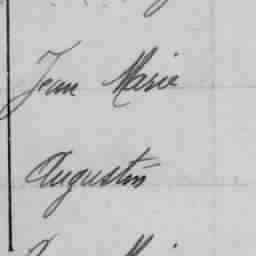 Jean Marie
Augustin